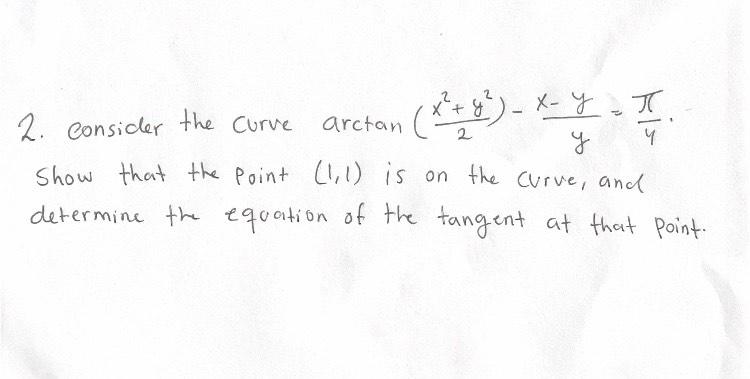 2. Consider the curve arctan (x²+y²/2) - x-y/y = π/4.
Show that the point (1,1) is on the curve, and
determine the equation of the tangent at that point.